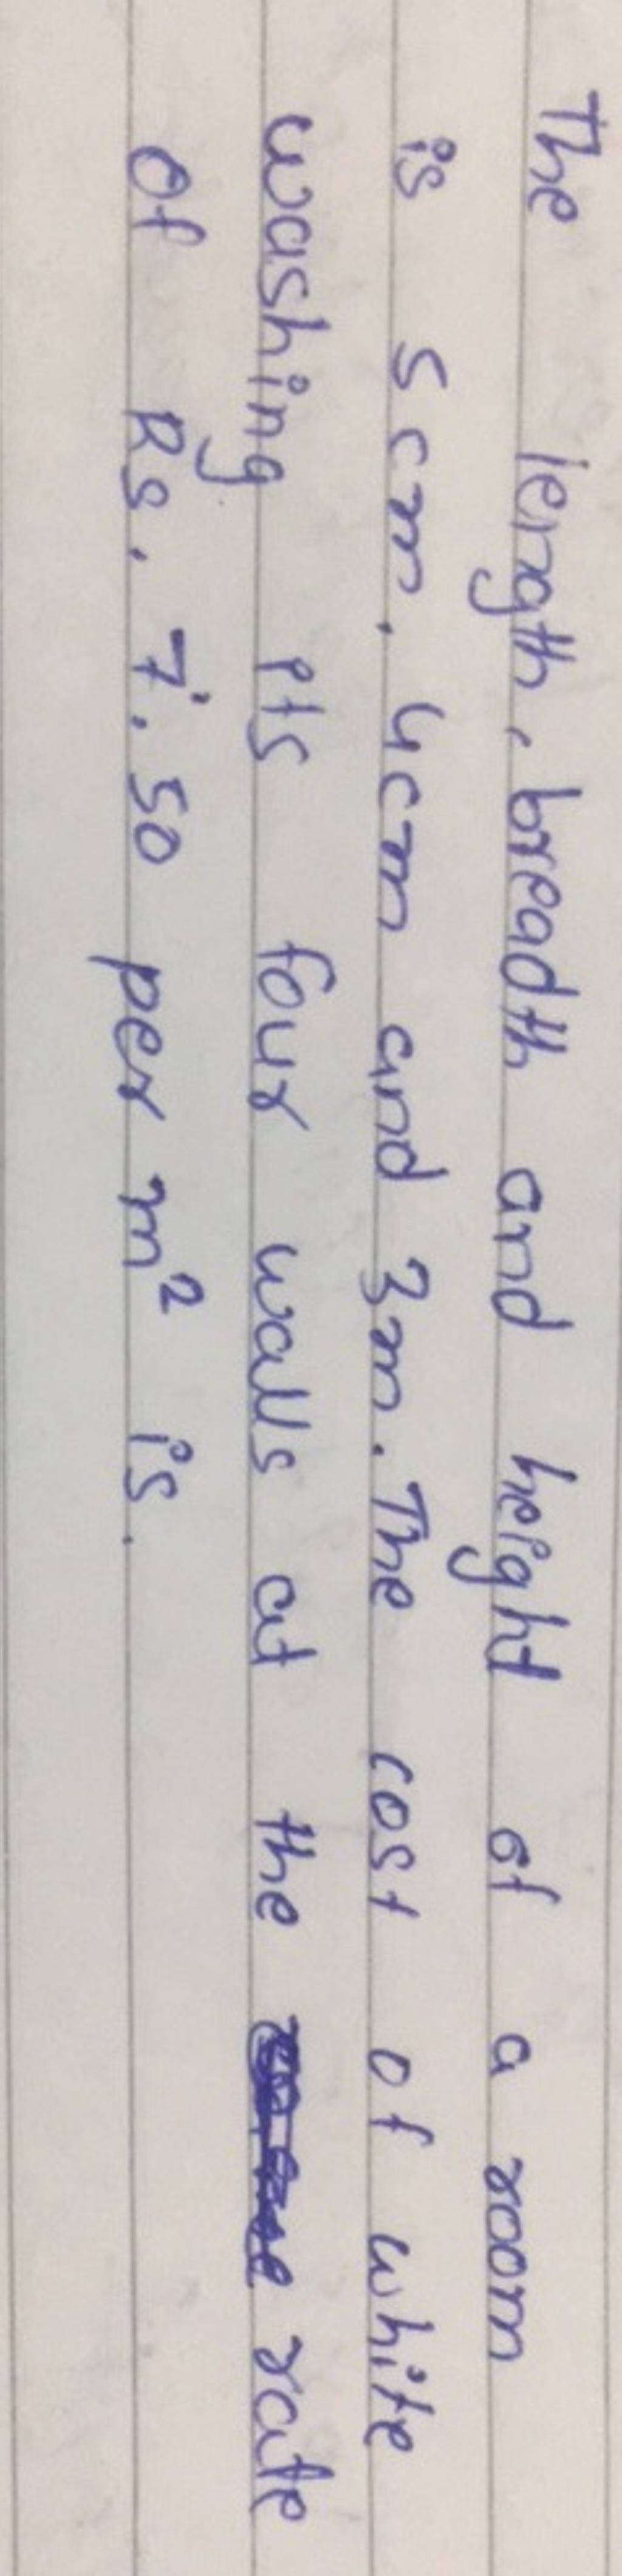 The length, breadth and height of a room
is 5cm, 4cm and 3m. The cost of white
washing its four walls at the rate
of Rs. 7.50 per m² is.